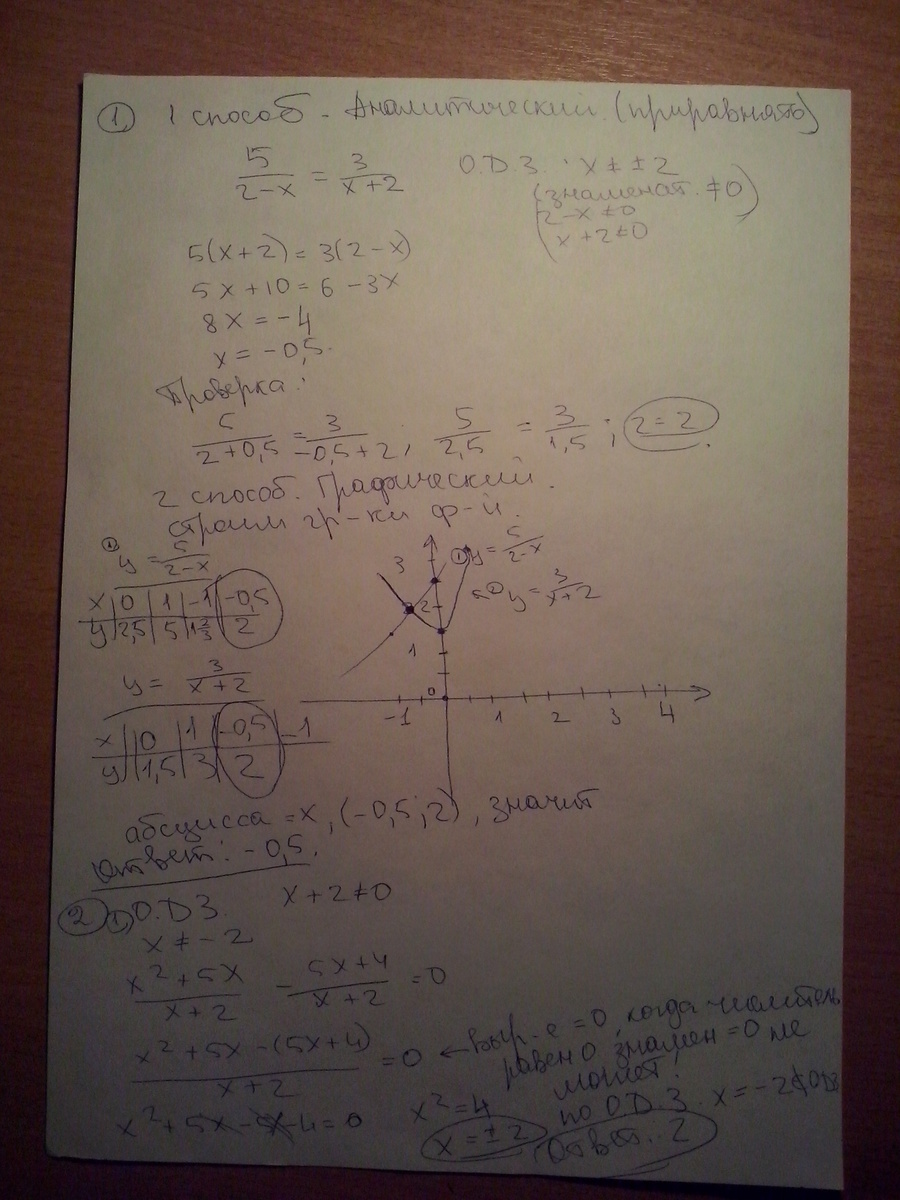 ① 1 способ - Аналитический (приравнять)
5/(2-x) = 3/(x+2)
О.D.З. x ≠ ±2
(знаменат. ≠0)
2-x≠0
x+2≠0
5(x+2)=3(2-x)
5x+10=6-3x
8x=-4
x=-0,5.
Проверка:
5/(2+0,5) = 3/(-0,5+2); 5/2,5 = 3/1,5; 2=2.
2 способ. Графический.
строим гр-ки ф-й.
① y=5/(2-x)
x | 0 | 1 | -1 | -0,5
y | 2,5 | 5 | 1 2/3 | 2
y= 3/(x+2)
x | 0 | 1 | -0,5 | -1
y | 1,5 | 3 | 2
① y=5/(2-x)
② y=3/(x+2)
3
2
1
0
-1 1 2 3 4
абсцисса =x, (-0,5; 2), значит
Ответ: -0,5.
② ① О.D.З. x+2≠0
x≠-2
(x²+5x)/(x+2) - (5x+4)/(x+2) =0
(x²+5x-(5x+4))/(x+2) =0 ← выр-е =0, когда числитель
равен 0, знамен =0 не
может!
x²+5x-5x-4=0
x²=4
x=±2
по О.D.З. x=-2
Ответ: 2